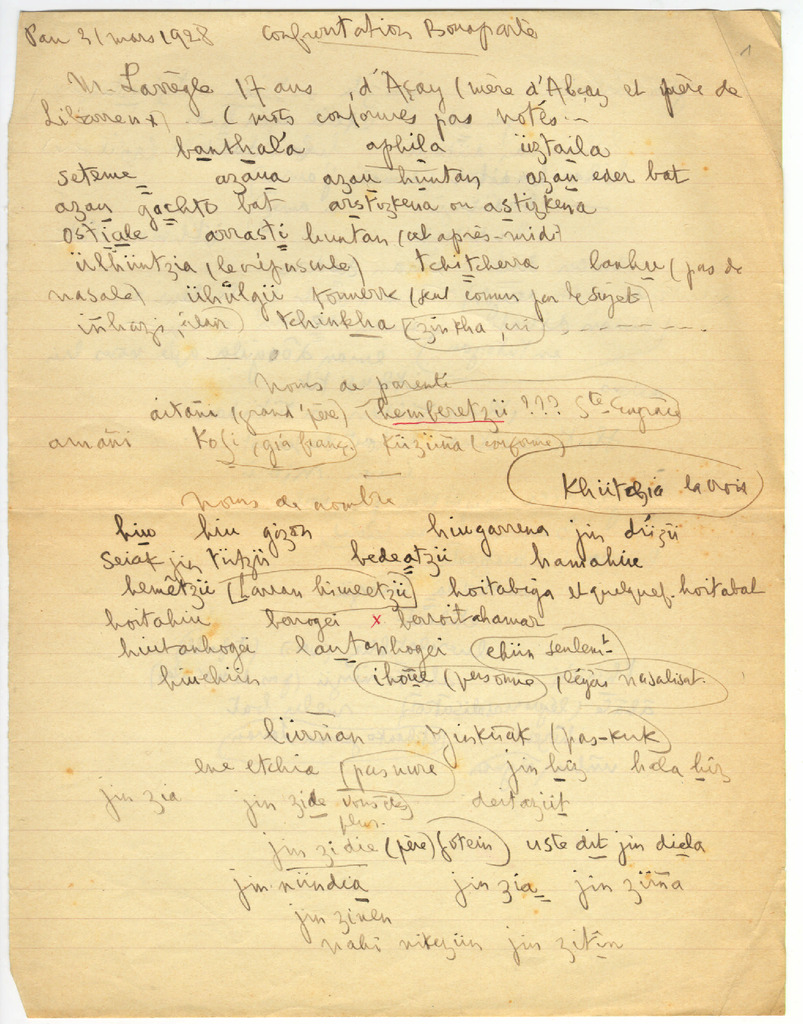 Pau 31 mars 1928 Confrontation Bonaparte
1
Mr. Larrègle 17 ans, d'Açay (mère d'Abçay et père de
Libarrenx) - (mots conformes pas notés -
banthala aphila üztaila
seteme azaua azau huntan azau eder bat
azau gachto bat arstizkena ou astizkena
ostiale arrasti huntan (cet après-midi
ülhüntzia (le crépuscule) tchitcherra lanhu (pas de
nasale) ühülgü tonnerre (seul connu par le sujet)
inhazi, tchinkha (zinkha, ni)
Noms de parenté
aitañi (grand'père) (hemberetzü ??? Ste Engrâce)
amañi Kosi (già franç.) Küzüña (conforme)
Khützia la croix
Noms de nombre
hiu hiu gizon hiugarrena jin dützü
seiak jin tützü bedeatzü hamahiu
hemetzü (Larrau himeetzü) hoitabiga et quelquef. hoitabat
hoitahiu berrogei x berroitahamar
hiutanhogei lautanhogei (ehün seulemt
hiuehün ihoue (personne), légère nasalisat.
Lürrian Yinkuak (pas -kuk)
ene etchia (pas nure) jin hiz hela hiz
jin zia jin zide vous êtes deitaziüt
plur.
jin zidie (père) (otein) uste dit jin diela
jin nündia jin zia jin ziña
jin zinen
nahi nikezün jin zitin